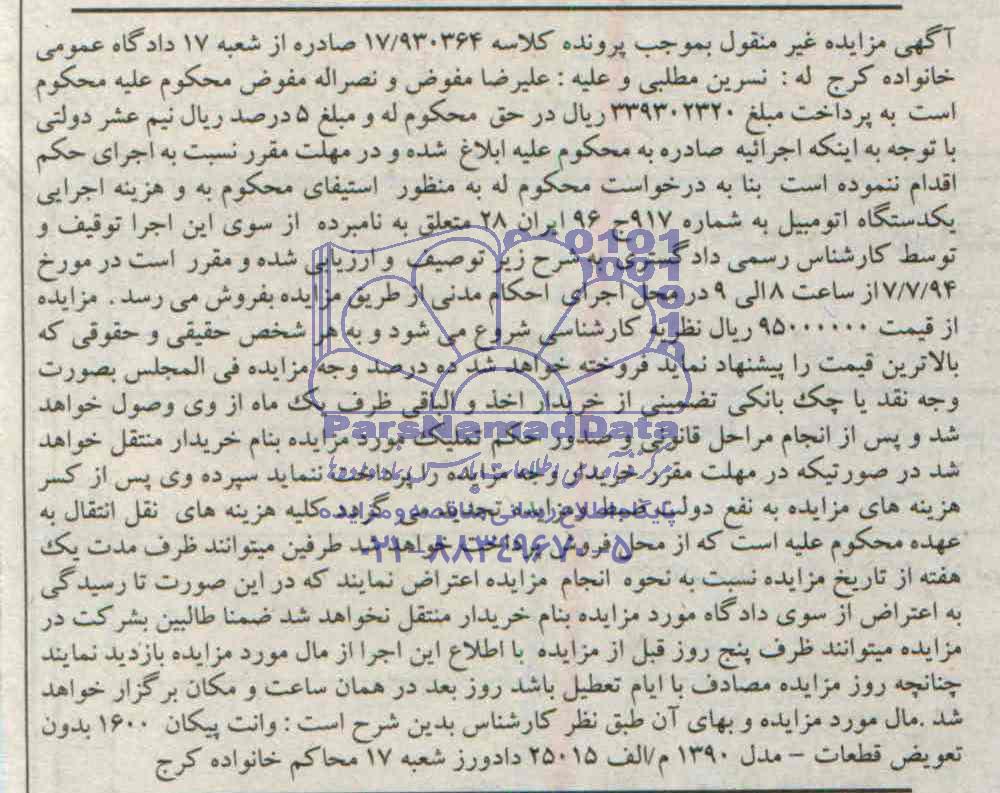 آگهی مزایده غیر منقول بموجب پرونده کلاسه ۱۷/۹۳۰۳۶۴ صادره از شعبه ۱۷ دادگاه عمومی
خانواده کرج له : نسرین مطلبی و علیه : علیرضا مفوض و نصراله مفوض محکوم علیه محکوم
است به پرداخت مبلغ ۳۳۹۳۰۲۳۲۰ ریال در حق محکوم له و مبلغ ۵ درصد ریال نیم عشر دولتی
با توجه به اینکه اجرائیه صادره به محکوم علیه ابلاغ شده و در مهلت مقرر نسبت به اجرای حکم
اقدام ننموده است بنا به درخواست محکوم له به منظور استیفای محکوم به و هزینه اجرایی
یکدستگاه اتومبیل به شماره ۹۱۷ج ۹۶ ایران ۲۸ متعلق به نامبرده از سوی این اجرا توقیف و
توسط کارشناس رسمی دادگستری به شرح زیر توصیف و ارزیابی شده و مقرر است در مورخ
۷/۷/۹۴ از ساعت ۸ الی ۹ در محل اجرای احکام مدنی از طریق مزایده بفروش می رسد . مزایده
از قیمت ۹۵۰۰۰۰۰۰ ریال نظریه کارشناسی شروع می شود و به هر شخص حقیقی و حقوقی که
بالاترین قیمت را پیشنهاد نماید فروخته خواهد شد ده درصد وجه مزایده فی المجلس بصورت
وجه نقد یا چک بانکی تضمینی از خریدار اخذ و الباقی ظرف یک ماه از وی وصول خواهد
شد و پس از انجام مراحل قانونی و صدور حکم تملیک مورد مزایده بنام خریدار منتقل خواهد
شد در صورتیکه در مهلت مقرر خریدار وجه مزایده را پرداخت ننماید سپرده وی پس از کسر
هزینه های مزایده به نفع دولت ضبط و مزایده تجدید می گردد کلیه هزینه های نقل انتقال به
عهده محکوم علیه است که از محل فروش پرداخت خواهد شد طرفین میتوانند ظرف مدت یک
هفته از تاریخ مزایده نسبت به نحوه انجام مزایده اعتراض نمایند که در این صورت تا رسیدگی
به اعتراض از سوی دادگاه مورد مزایده بنام خریدار منتقل نخواهد شد ضمنا طالبین بشرکت در
مزایده میتوانند ظرف پنج روز قبل از مزایده با اطلاع این اجرا از مال مورد مزایده بازدید نمایند
چنانچه روز مزایده مصادف با ایام تعطیل باشد روز بعد در همان ساعت و مکان برگزار خواهد
شد .مال مورد مزایده و بهای آن طبق نظر کارشناس بدین شرح است : وانت پیکان ۱۶۰۰ بدون
تعویض قطعات – مدل ۱۳۹۰ م/الف ۲۵۰۱۵ دادورز شعبه ۱۷ محاکم خانواده کرج
ParsNamadData
پایگاه اطلاع رسانی مناقصه و مزایده
۰۲۱-۸۸۳۴۹۶۷۰-۵